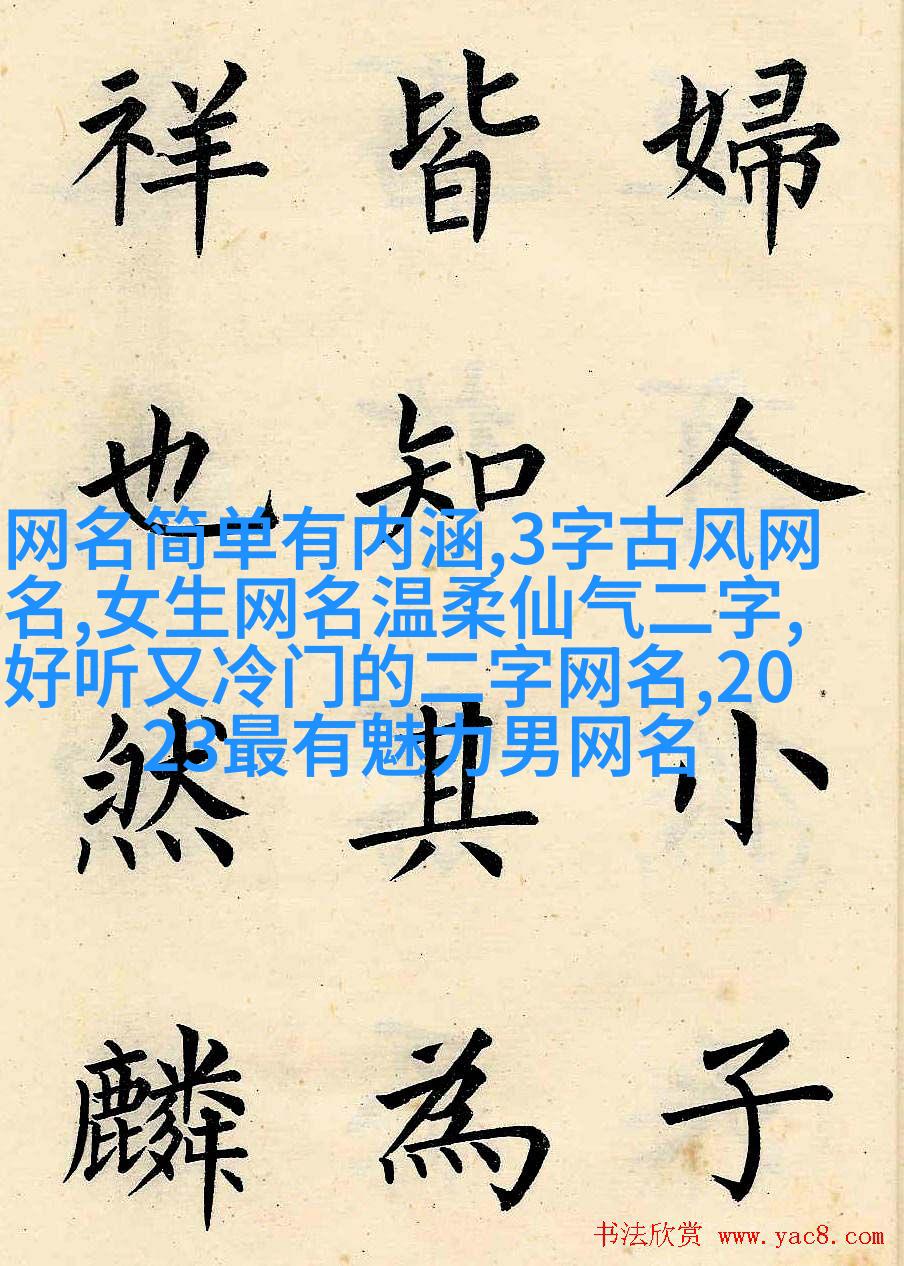 婦人小子
皆知其為
祥也然麟
网名简单有内涵,3字古风网
名,女生网名温柔仙气二字,
好听又冷门的二字网名,20
23最有魅力男网名
书法欣赏 www.yac8.com